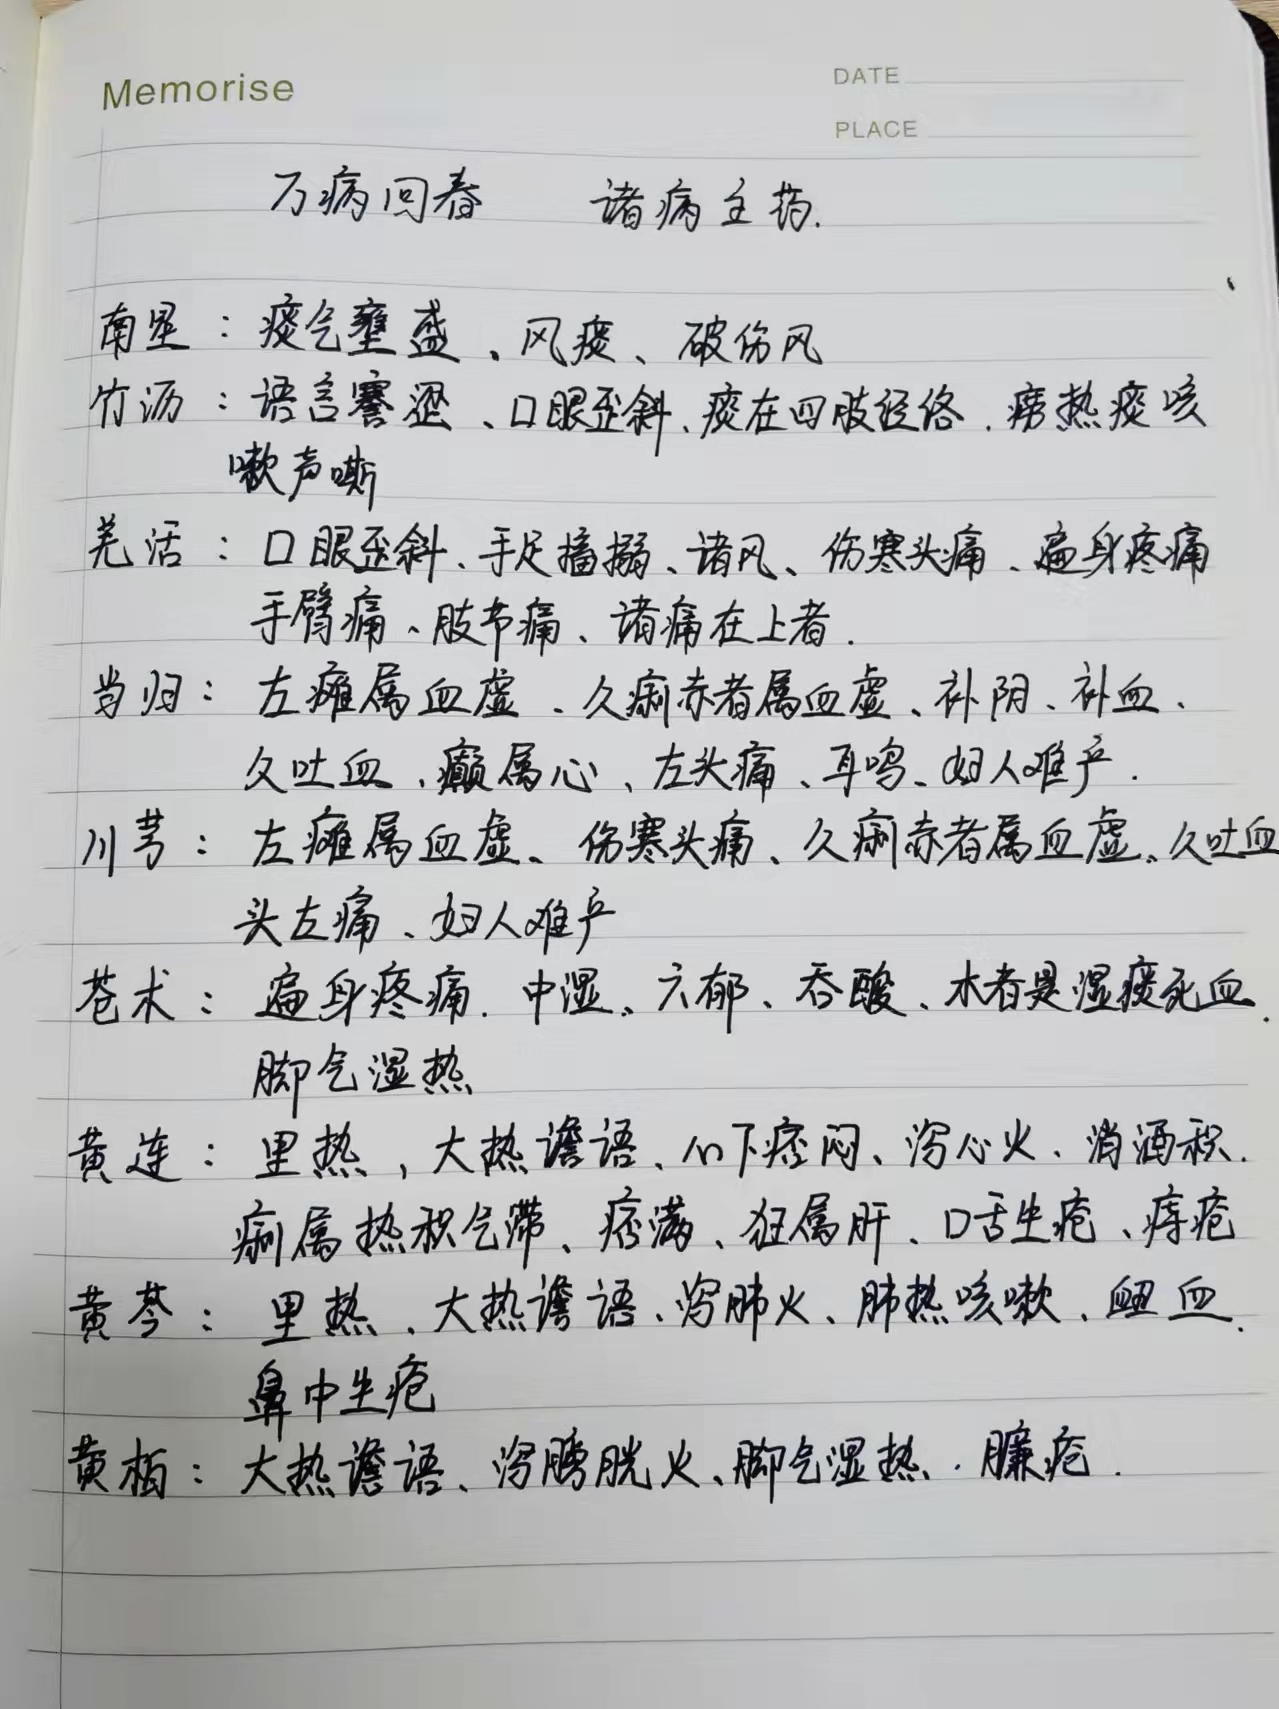 Memorise
DATE
PLACE
万病回春 诸病主药.
南星：痰气壅盛、风痰、破伤风
竹沥：语言蹇涩、口眼歪斜、痰在四肢经络.痨热痰咳
嗽声嘶
羌活：口眼歪斜、手足搐搦、诸风、伤寒头痛、遍身疼痛
手臂痛、肢节痛、诸痛在上者.
当归：左瘫属血虚、久痢赤者属血虚、补阴、补血、
久吐血、癫属心、左头痛、耳鸣、妇人难产.
川芎：左瘫属血虚、伤寒头痛、久痢赤者属血虚、久吐血
头左痛、妇人难产
苍术：遍身疼痛.中湿、六郁、吞酸、木者是湿痰死血.
脚气湿热
黄连：里热、大热谵语、心下痞闷、泻心火、消酒积.
痢属热积气滞、痞满、狂属肝、口舌生疮、痔疮
黄芩：里热、大热谵语、泻肺火、肺热咳嗽、衄血.
鼻中生疮
黄柏：大热谵语、泻膀胱火、脚气湿热.臁疮.